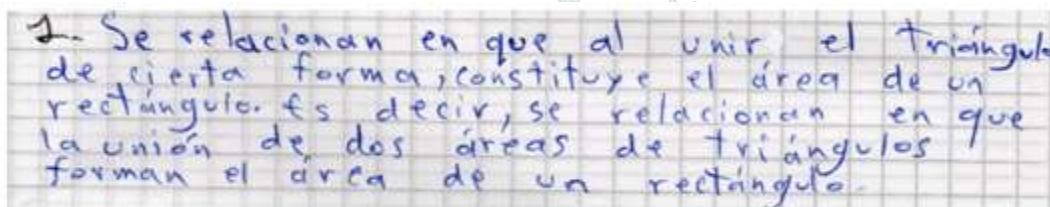 1. Se relacionan en que al unir el triángulo
de cierta forma, constituye el área de un
rectángulo. Es decir, se relacionan en que
la unión de dos áreas de triángulos
forman el área de un rectángulo.